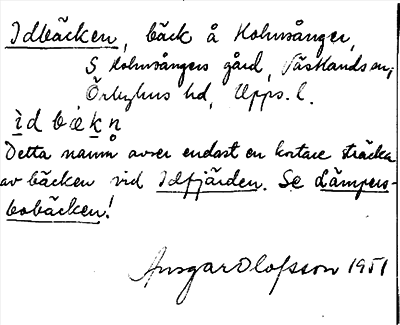 Idbäcken, bäck å Holmsånger,
S Holmsångers gård, Västlands sn,
Örbyhus hd, Upps. l.
ìd bèkn̥
Detta namn avser endast en kortare sträcka
av bäcken vid Idfjärden. Se Lämpers-
bobäcken!
Ansgar Olofsson 1951